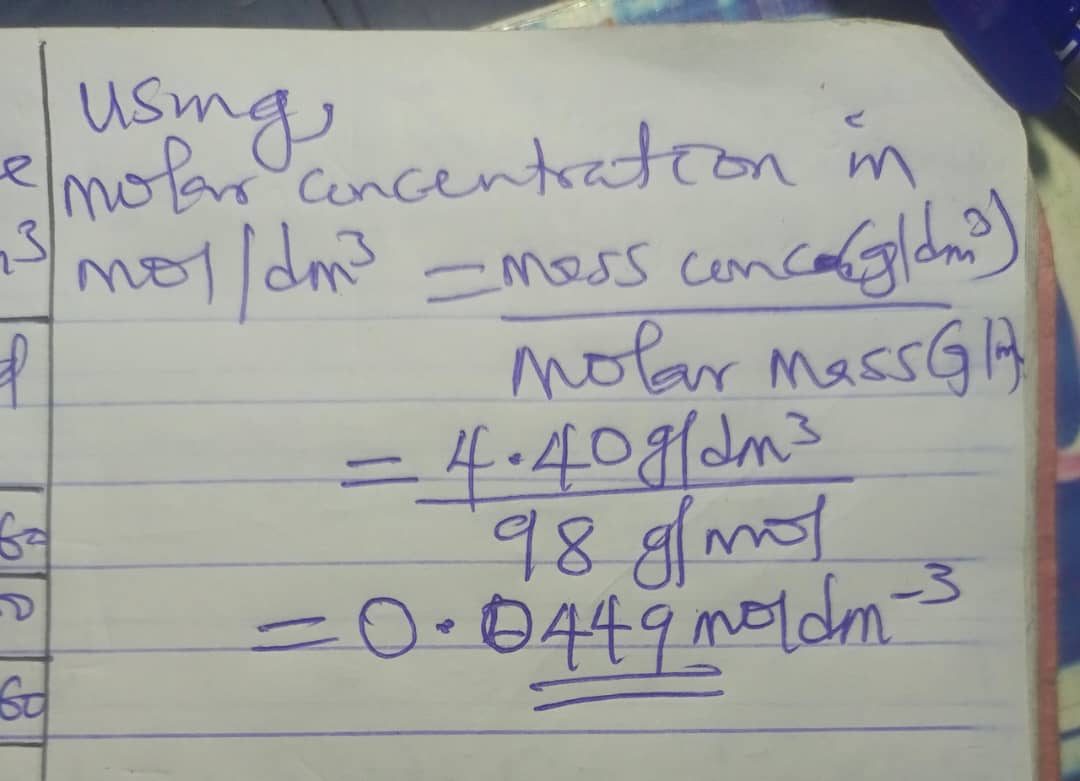 using,
molar concentration in
mol/dm³ = mass conc.(g/dm³)
molar mass
= 4.40g/dm³
98 g/mol
= 0.0449 moldm⁻³
e
3
60
60